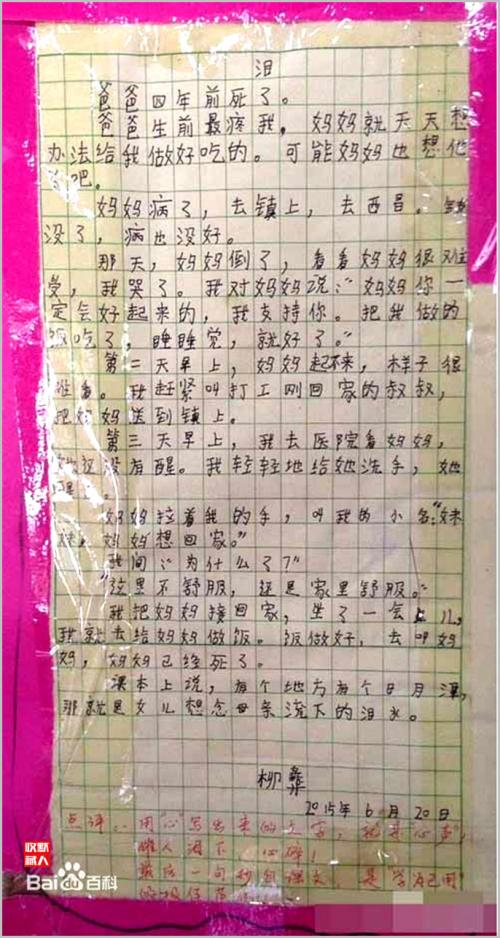 泪
爸爸四年前死了。
爸爸生前最疼我，妈妈就天天想
办法给我做好吃的。可能妈妈也想他
吧。
妈妈病了，去镇上，去西昌。钱
没了，病也没好。
那天，妈妈倒了，看看妈妈很难
受，我哭了。我对妈妈说：“妈妈你一
定会好起来的，我支持你。把我做的
饭吃了，睡睡觉，就好了。”
第二天早上，妈妈起不来，样子很
难看。我赶紧叫打工刚回家的叔叔，
把妈妈送到镇上。
第三天早上，我去医院看妈妈，
她还没有醒。我轻轻地给她洗手，她
醒
妈妈拉着我的手，叫我的小名：“妹
妹，妈妈想回家。”
我问：“为什么了？”
“这里不舒服，还是家里舒服。”
我把妈妈接回家，坐了一会儿，
我就去给妈妈做饭。饭做好，去叫妈
妈，妈妈已经死了。
课本上说，有个地方有个日月潭，
那就是女儿想念母亲流下的泪水。
柳彝
2015年6月20日
点评：用“心”写出来的文字，就是心声，
催人泪下，心碎！
最后一句抄自课文，是“学为己用”
的
默藏
收人
Bai du 百科